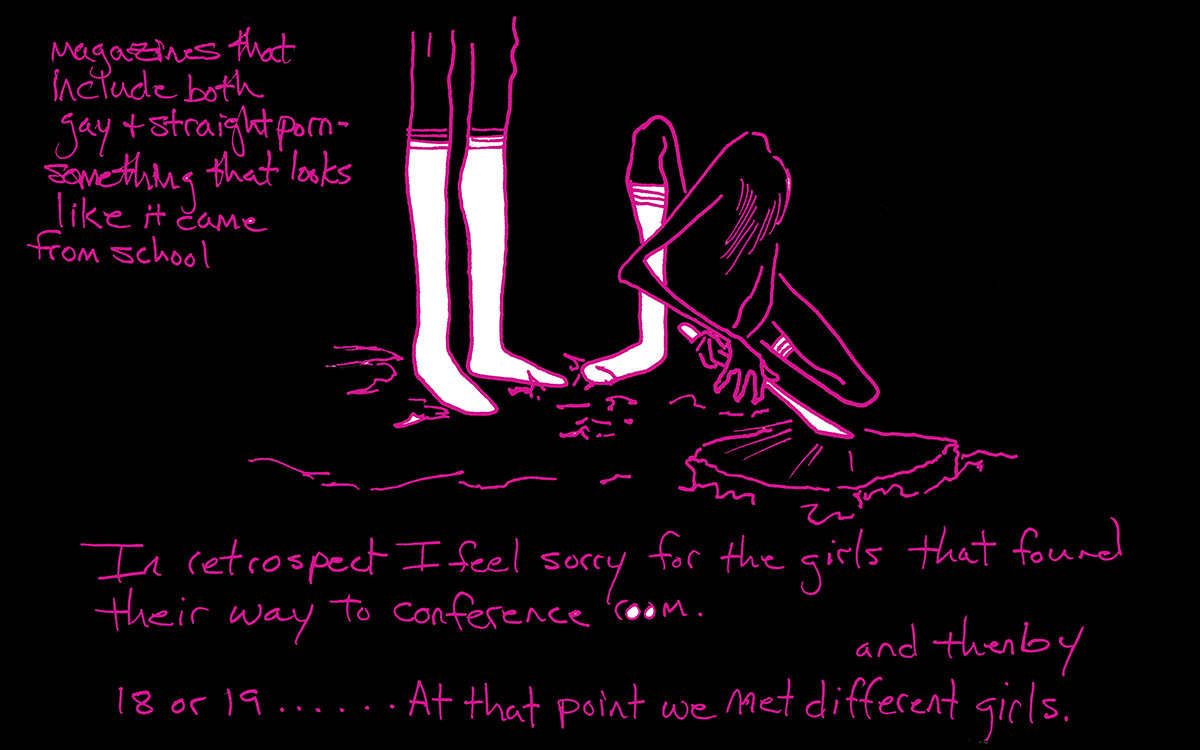 magazines that
include both
gay + straight porn-
something that looks
like it came
from school
In retrospect I feel sorry for the girls that found
their way to conference room.
and then by
18 or 19 ....... At that point we met different girls.